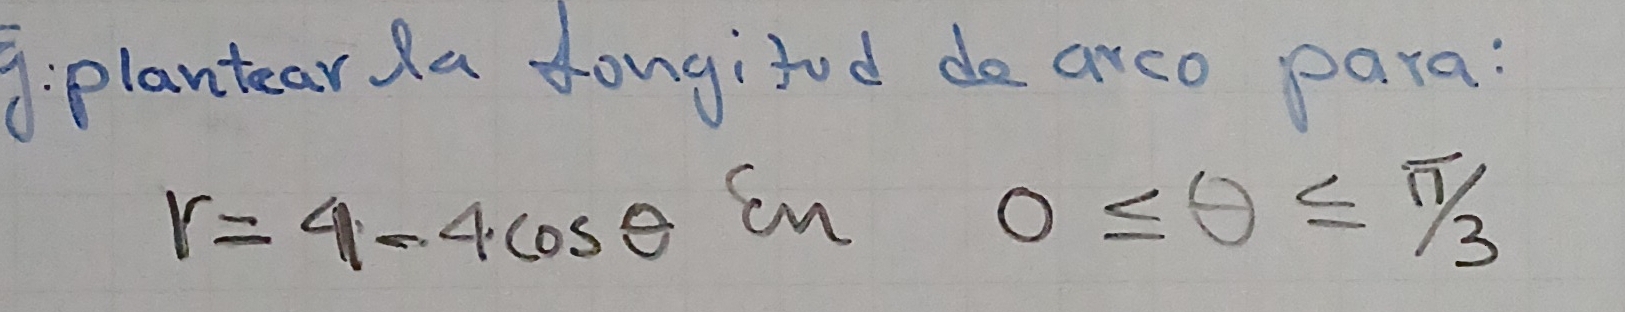 g: plantear la longitud de arco para:
r = 4 - 4 cos θ En 0 ≤ θ ≤ π/3